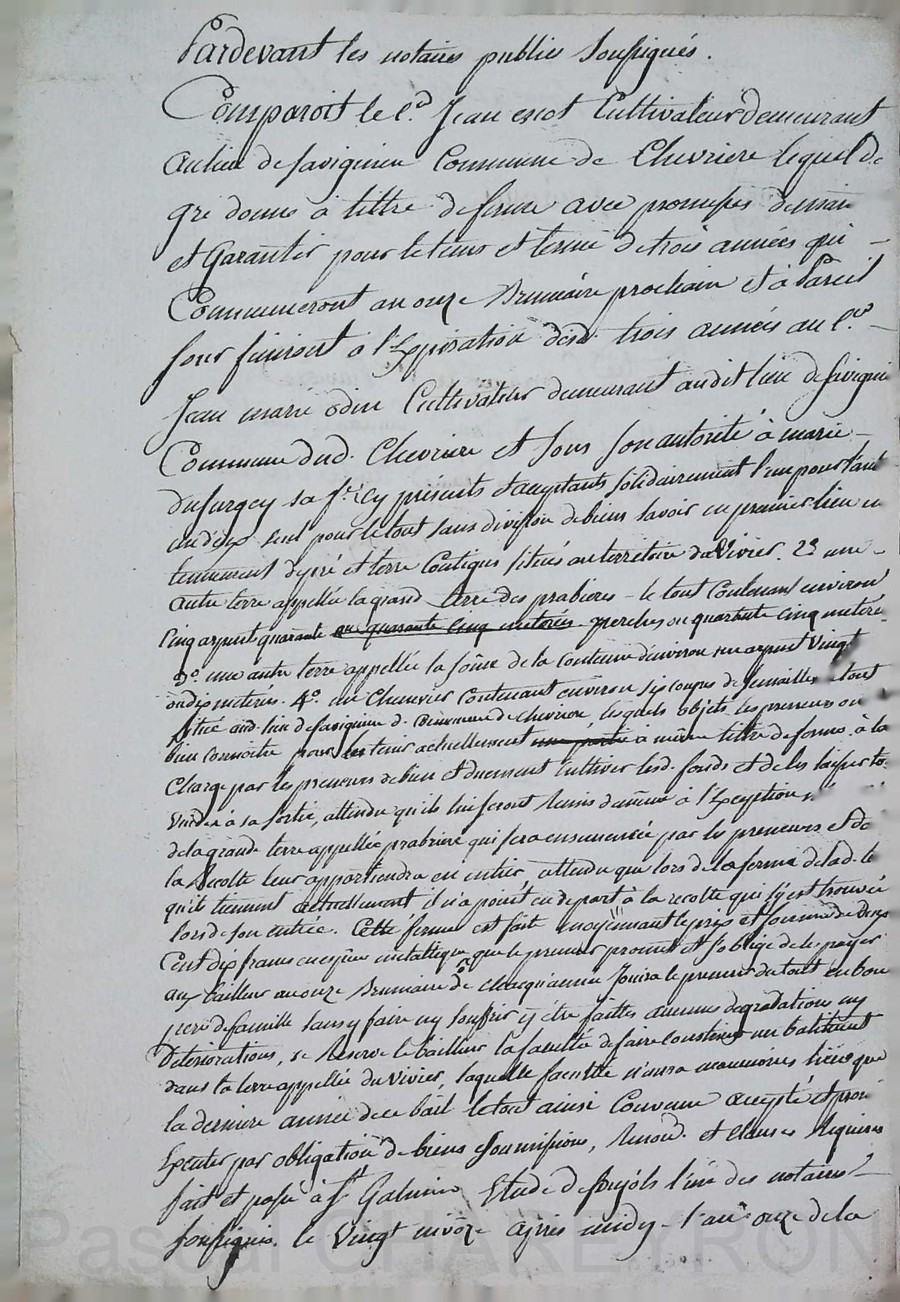 Pardevant les notaires publics soussignés.
Comparoit le C.n Jean escot Cultivateur demeurant
au lieu de savignieu Commune de Chevriere lequel de
gré donne à tittre de ferme avec promesses de main
et Garantir pour le tems et terme de trois années qui
Commenceront au onze Brumaire prochain et à Pareil
Jour finiront a l'Expiration desd. trois années au C.n
Jean marie odin Cultivateur demeurant audit lieu de
Commune dud. Chevriere et sous son autorité à marie
sa f.e cy présents et acceptants solidairement l'un pour l'autre
un d'eux seul pour le tout sans division de biens savoir en premier lieu un
tennement de pré et terre Contigus situés au territoire du Vivier. 2° une
autre terre appellée la grand terre des prabieres - le tout Contenant environ
Cinq arpent quarante ou quarante Cinq metérés perches ou quarante Cinq metéré
3°. une autre terre appellée la de la Contenue d'environ un arpent Vingt
ou dix metérés. 4°. un Chenevier Contenant environ six coupes de semailles le tout
situé aud. lieu de savignieu d. Commune de chevriere, lesquels objets les preneurs ont
bien connoitre pour les tenir actuellement une partie a même tittre de ferme. à la
Charge par les preneurs de bien et duement Cultiver lesd. fonds et de les laisser
a sa sortie, attendu qu'ils lui seront remis de même à l'Exception
de la grande terre appellée prabriere qui sera ensemencée par les preneurs et de
la Recolte leur appartiendra en entier, attendu que lors de la ferme de lad. te
qu'ils tiennent actuellement il n'a point eu de part à la recolte qui s'y est trouvée
lors de son entrée. Cette ferme est faite moyennant le prix et somme de Deux
Cent dix francs en espèce métallique que le preneur promet et s'oblige de les payer
aux bailleur au onze Brumaire de chacque année Jouira le preneur du tout en bon
pere de famille sans y faire ny souffrir y être faittes aucunes degradations ny
Deteriorations, se Reserve le bailleur la faculté de faire Construire un batiment
dans la terre appellée du Vivier, laquelle faculté n'aura neanmoins lieu que
la derniere année de ce bail le tout ainsi Convenu accepté et promis
Executer par obligation de biens soumissions, Renond. et Clauses Requises
fait et passé à S.t Galmier Etude de Pujols l'un des notaires
soussignés. le Vingt nivôse après midy l'an onze de la
Pascal CHAREYRON